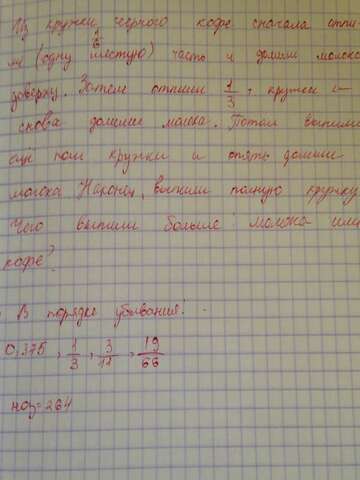 Из кружки чёрного кофе сначала отпи-
ли 1/6 (одну шестую) часть и долили молоко
доверху. Затем отпили 1/3 кружки и
снова долили молока. Потом выпили
ещё пол кружки и опять долили
молока. Наконец, выпили полную кружку
Чего выпили больше: молока или
кофе?
В порядке убывания!
0,375, 1/3, 3/11, 19/66
ноз=264